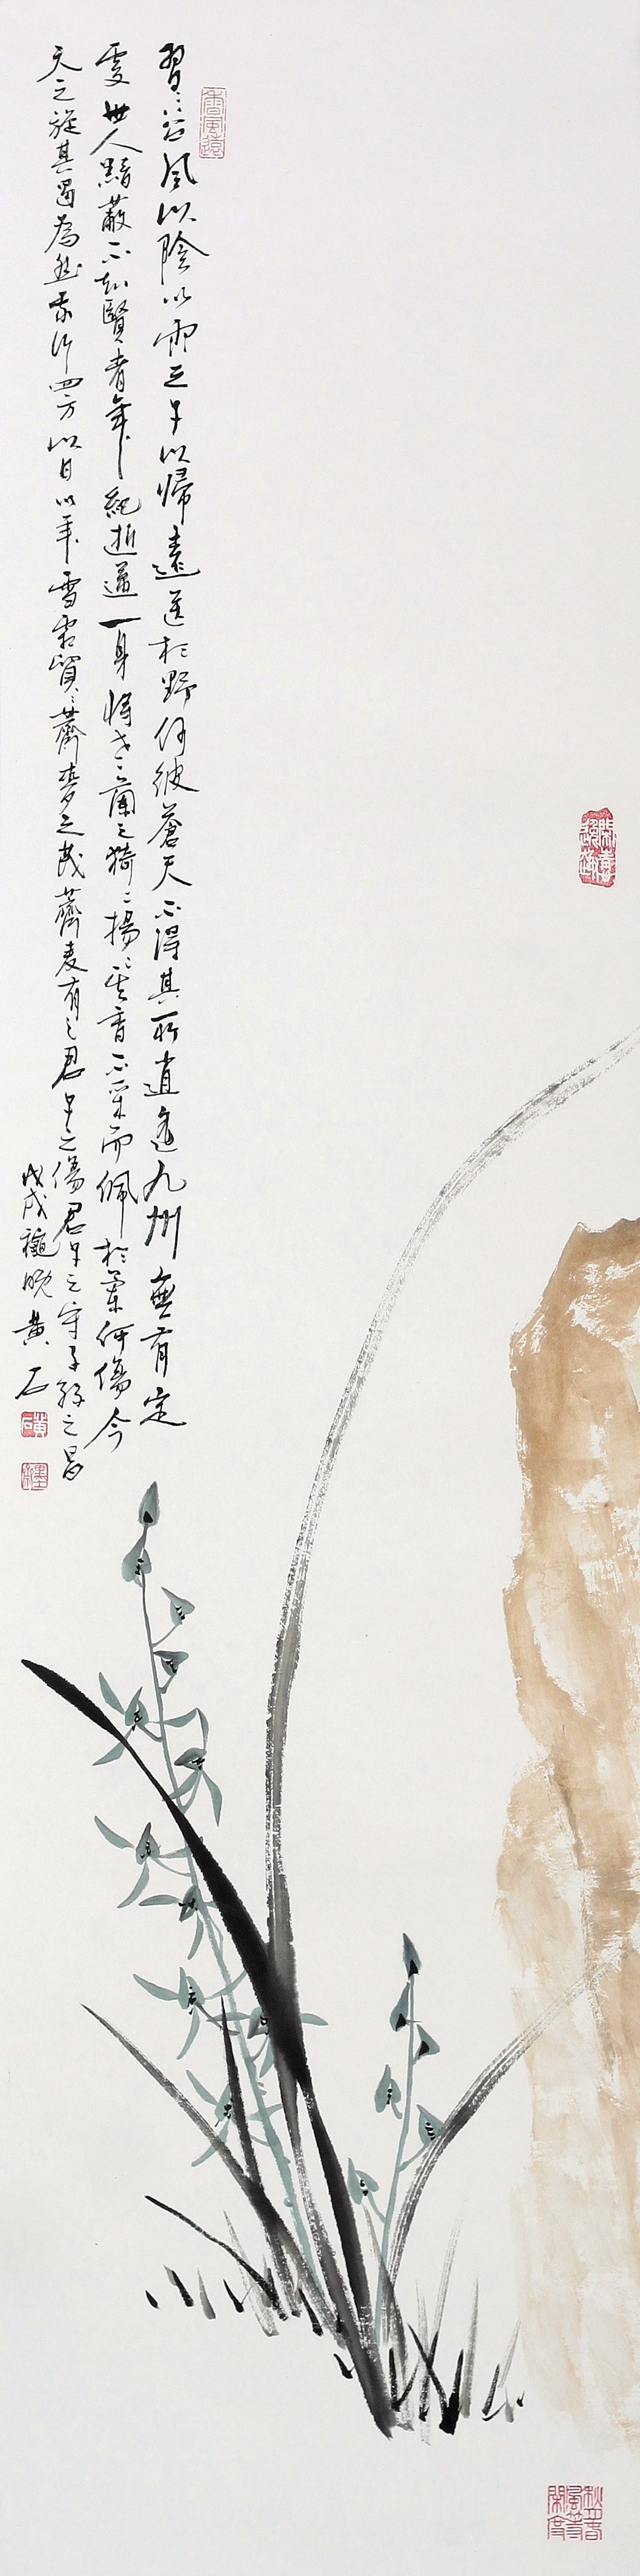 香風遠
習〻谷風以陰以雨之子以歸遠送於野何彼蒼天不得其所逍遙九州無有定
處世人黯蔽不知賢者年紀逝邁一身將老蘭之猗〻揚〻其香不采而佩於蘭何傷今
天之旋其曷為然我行四方以日以年雪霜貿〻薺麥之茂薺麥有之君子之傷君子之守子孫之昌
戊戌龝晚黃石
黃石
秋月春風等閑度